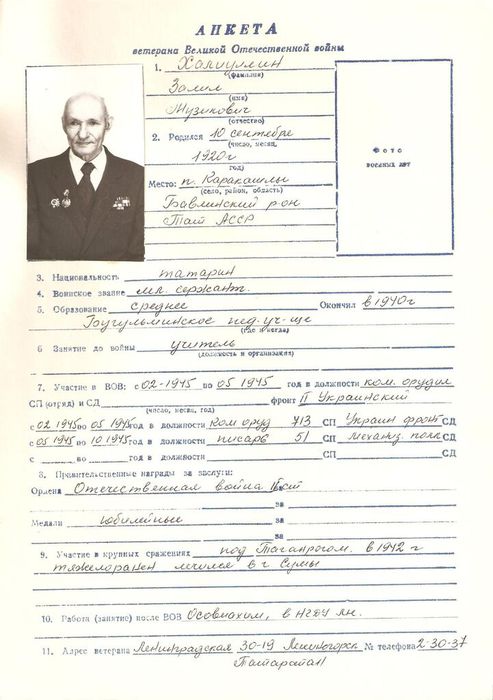 АНКЕТА
ветерана Великой Отечественной войны
1. Халиуллин
(фамилия)
Залил
(имя)
Музипович
(отчество)
2. Родился 10 сентебре
(число, месяц,
1920г
год)
Место: п. Каракашлы
(село, район, область)
Бавлинский р-он
Тат АССР
Фото
военных лет
3. Национальность татарин
4. Воинское звание мл. сержант.
5. Образование среднее Окончил в 1940г
Бугульминское пед-уч-ще
(где и когда)
6 Занятие до войны учитель
(должность и организация)
7. Участие в ВОВ: с 02-1945 по 05 1945 год в должности ком. орудия
СП (отряд) и СД фронт II Украинский
(число, месяц, год)
с 02 1945 по 05 1945 год в должности ком оруд 713 СП Украин фронт СД
с 05 1945 по 10 1945 год в должности писарь 51 СП механиз. полк СД
с по год в должности СП СД
8. Правительственные награды за заслуги:
Ордена Отечественная война II ст
за
Медали юбилейные за
за
9. Участие в крупных сражениях под Таганрогом. в 1942 г
тяжелоранен лечился в г Сумы
10. Работа (занятие) после ВОВ Осовиахим, в НГДУ ЛН.
11. Адрес ветерана Ленинградская 30-19 Лениногорск № телефона 2-30-37
Татарстан